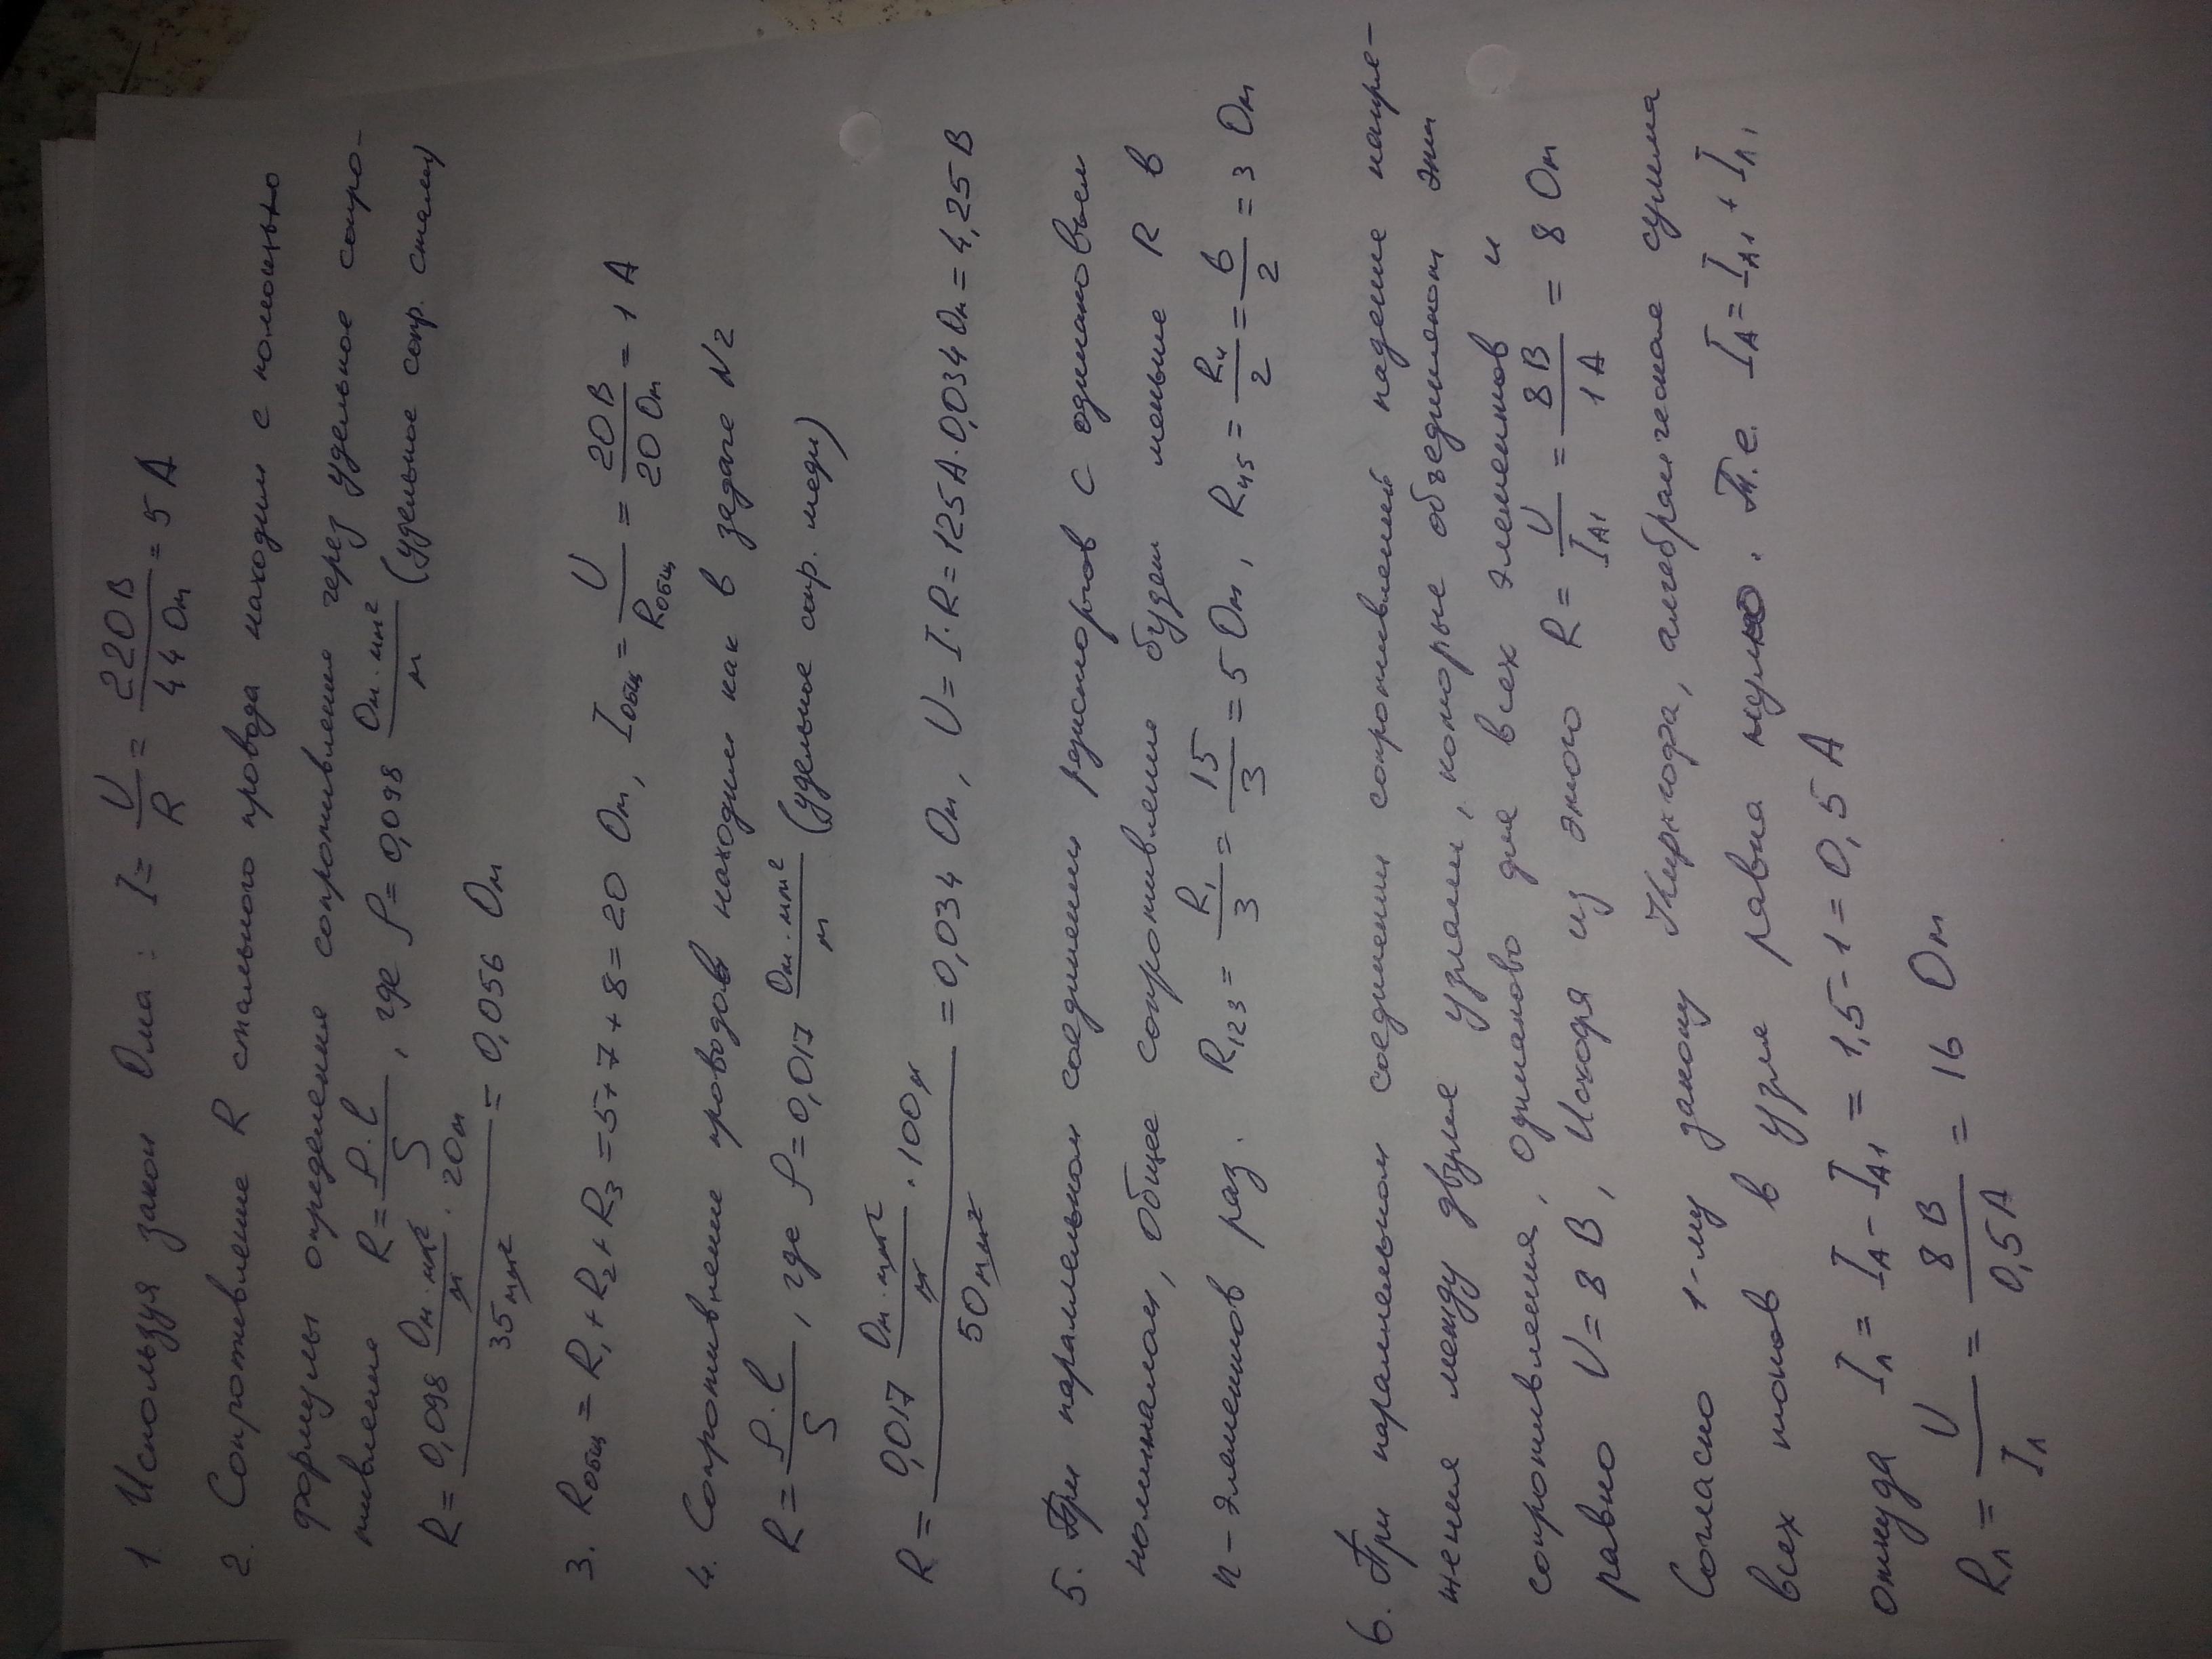 1 Используя закон Ома: I = U/R = 220В/44 Ом = 5 А
2. Сопротивление R стального провода находим с помощью
формулы определения сопротивления через удельное сопро-
тивление R = ρ·l/S, где ρ = 0,098 Ом·мм²/м (удельное сопр. стали)
R = 0,098 Ом·мм²/м · 20м / 35мм² = 0,056 Ом
3. Rобщ = R₁ + R₂ + R₃ = 5+7+8 = 20 Ом, Iобщ = U/Rобщ = 20В/20 Ом = 1 А
4. Сопротивление проводов находим как в задаче №2
R = ρ·l/S, где ρ = 0,017 Ом·мм²/м (удельное сопр. меди)
R = 0,017 Ом·мм²/м · 100м / 50мм² = 0,034 Ом, U = I·R = 125А·0,034 Ом = 4,25 В
5. При параллельном соединении резисторов с одинаковым
номиналом, общее сопротивление будет меньше R в
n-элементов раз. R₁₂₃ = R₁/3 = 15/3 = 5 Ом, R₄₅ = R₄/2 = 6/2 = 3 Ом
6. При параллельном соединении сопротивлений падение напря-
жения между двумя узлами, которые объединяют эти
сопротивления, одинаково для всех элементов и
равно U = 8 В, Исходя из этого R = U/IА1 = 8В/1А = 8 Ом
Согласно 1-му закону Кирхгофа, алгебраическая сумма
всех токов в узле равна нулю. Т.е. IА = IА1 + IЛ,
откуда IЛ = IА - IА1 = 1,5-1 = 0,5 А
RЛ = U/IЛ = 8 В/0,5А = 16 Ом